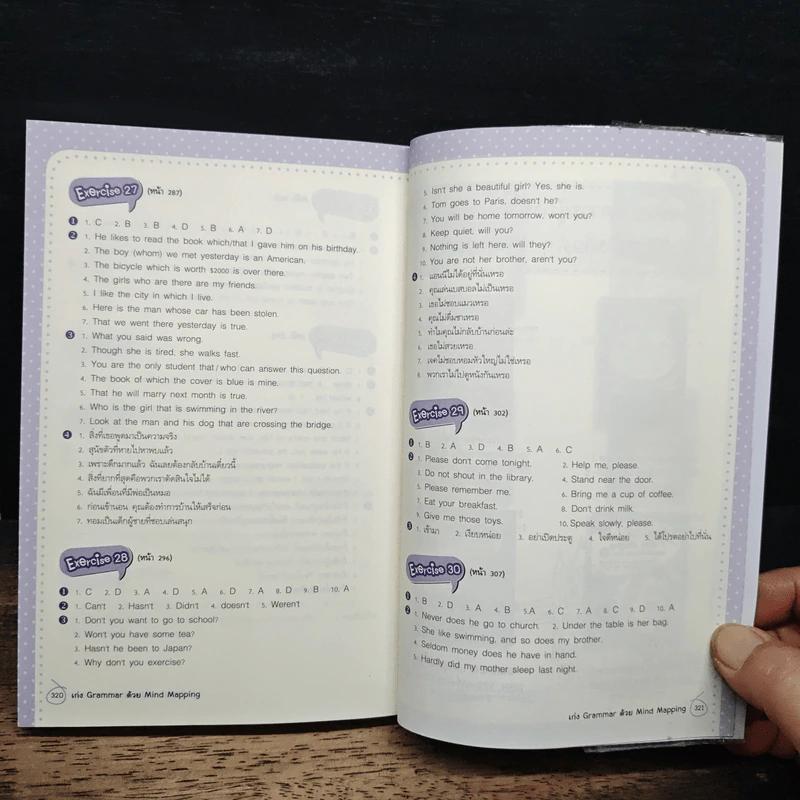 Exercise 27 (หน้า 287)
❶ 1. C 2. B 3. B 4. D 5. B 6. A 7. D
❷ 1. He likes to read the book which/that I gave him on his birthday.
2. The boy (whom) we met yesterday is an American.
3. The bicycle which is worth $2000 is over there.
4. The girls who are there are my friends.
5. I like the city in which I live.
6. Here is the man whose car has been stolen.
7. That we went there yesterday is true.
❸ 1. What you said was wrong.
2. Though she is tired, she walks fast.
3. You are the only student that/who can answer this question.
4. The book of which the cover is blue is mine.
5. That he will marry next month is true.
6. Who is the girl that is swimming in the river?
7. Look at the man and his dog that are crossing the bridge.
❹ 1. สิ่งที่เธอพูดมาเป็นความจริง
2. สุนัขตัวที่หายไปหาพบแล้ว
3. เพราะดึกมากแล้ว ฉันเลยต้องกลับบ้านเดี๋ยวนี้
4. สิ่งที่ยากที่สุดคือพวกเราตัดสินใจไม่ได้
5. ฉันมีเพื่อนที่มีพ่อเป็นหมอ
6. ก่อนเข้านอน คุณต้องทำการบ้านให้เสร็จก่อน
7. ทอมเป็นเด็กผู้ชายที่ชอบเล่นสนุก
Exercise 28 (หน้า 296)
❶ 1. C 2. D 3. A 4. D 5. A 6. D 7. A 8. D 9. B 10. A
❷ 1. Can't 2. Hasn't 3. Didn't 4. doesn't 5. Weren't
❸ 1. Don't you want to go to school?
2. Won't you have some tea?
3. Hasn't he been to Japan?
4. Why don't you exercise?
320 เก่ง Grammar ด้วย Mind Mapping
5. Isn't she a beautiful girl? Yes, she is.
6. Tom goes to Paris, doesn't he?
7. You will be home tomorrow, won't you?
8. Keep quiet, will you?
9. Nothing is left here, will they?
10. You are not her brother, aren't you?
❹ 1. แอนนี่ไม่ได้อยู่ที่นั่นเหรอ
2. คุณเล่นเบสบอลไม่เป็นเหรอ
3. เธอไม่ชอบแมวเหรอ
4. คุณไม่ดื่มชาเหรอ
5. ทำไมคุณไม่กลับบ้านก่อนล่ะ
6. เธอไม่สวยเหรอ
7. เจคไม่ชอบหอมหัวใหญ่ไม่ใช่เหรอ
8. พวกเราไม่ไปดูหนังกันเหรอ
Exercise 29 (หน้า 302)
❶ 1. B 2. A 3. D 4. B 5. A 6. C
❷ 1. Please don't come tonight. 2. Help me, please.
3. Do not shout in the library. 4. Stand near the door.
5. Please remember me. 6. Bring me a cup of coffee.
7. Eat your breakfast. 8. Don't drink milk.
9. Give me those toys. 10. Speak slowly, please.
❸ 1. เข้ามา 2. เงียบหน่อย 3. อย่าเปิดประตู 4. ใจดีหน่อย 5. ได้โปรดอย่าไปที่นั่น
Exercise 30 (หน้า 307)
❶ 1. B 2. D 3. A 4. B 5. A 6. C 7. A 8. C 9. D 10. A
❷ 1. Never does he go to church. 2. Under the table is her bag.
3. She like swimming, and so does my brother.
4. Seldom money does he have in hand.
5. Hardly did my mother sleep last night.
เก่ง Grammar ด้วย Mind Mapping 321